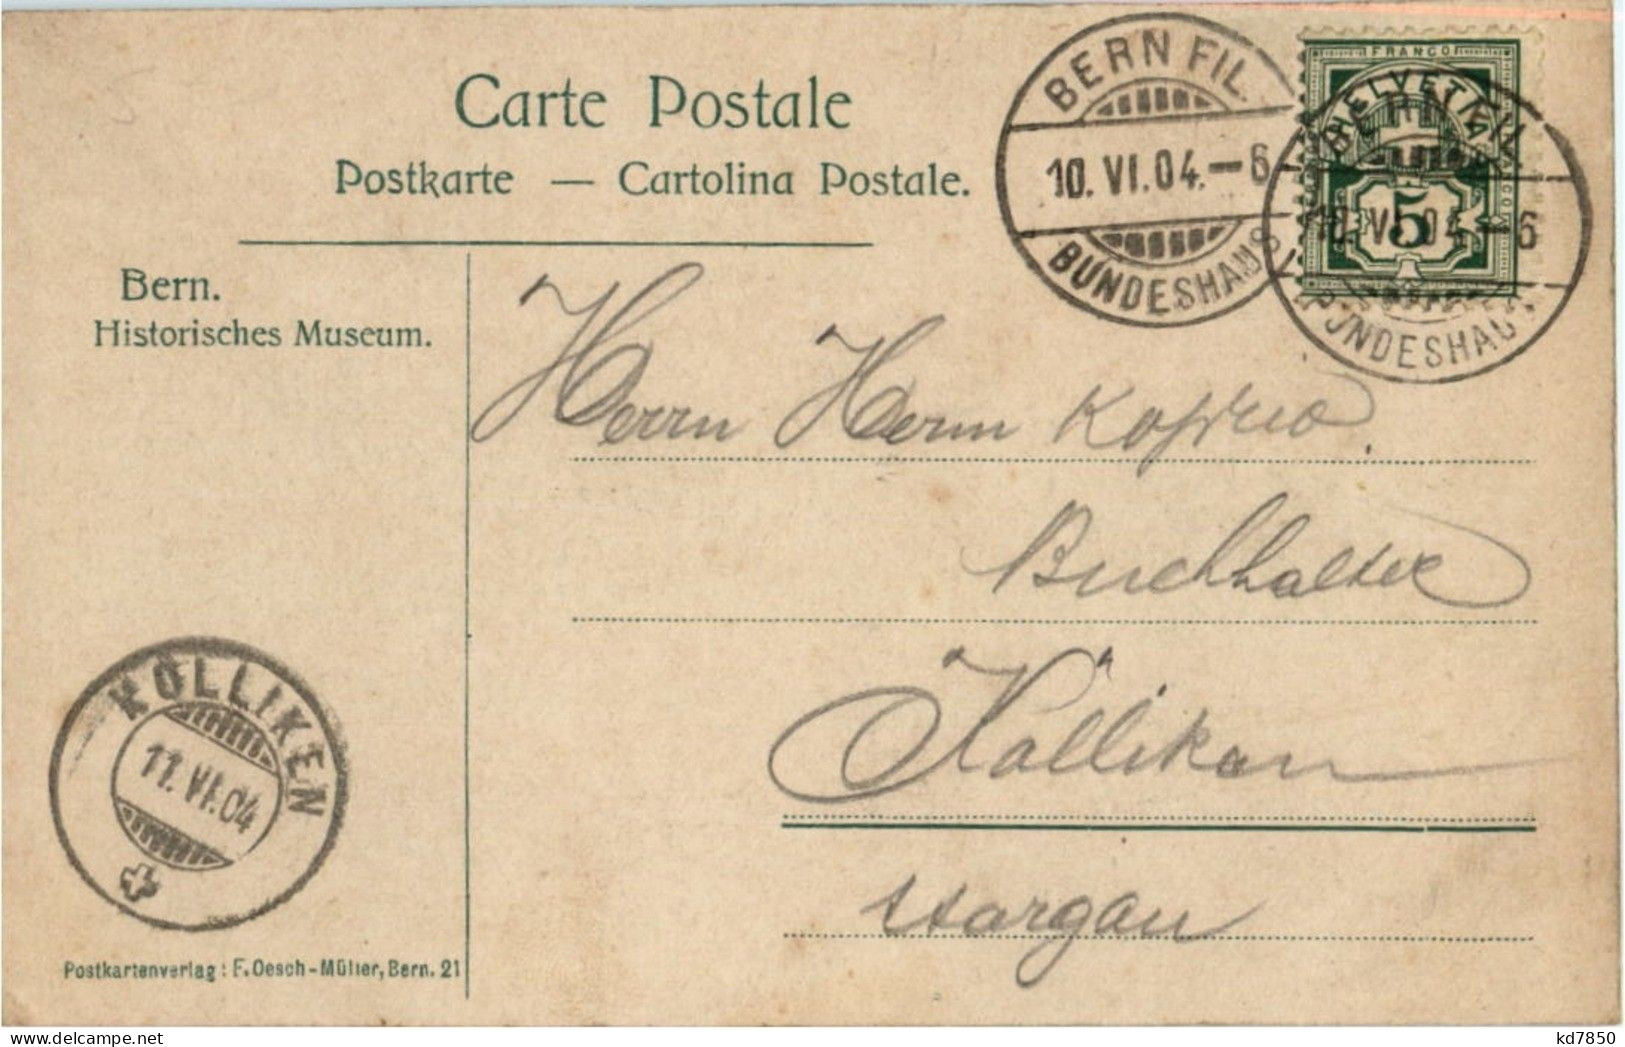 Carte Postale
Postkarte — Cartolina Postale.
Bern.
Historisches Museum.
BERN FIL.
10. VI. 04. – 6
BUNDESHAUS
FRANCO
HELVETIA
5
10. VI. 04. – 6
BUNDESHAUS
Herrn Herrn
Buchhalter
Källikon
Aargau
KÖLLIKEN
11. VI. 04
Postkartenverlag : F. Oesch-Müller, Bern. 21
kd7850